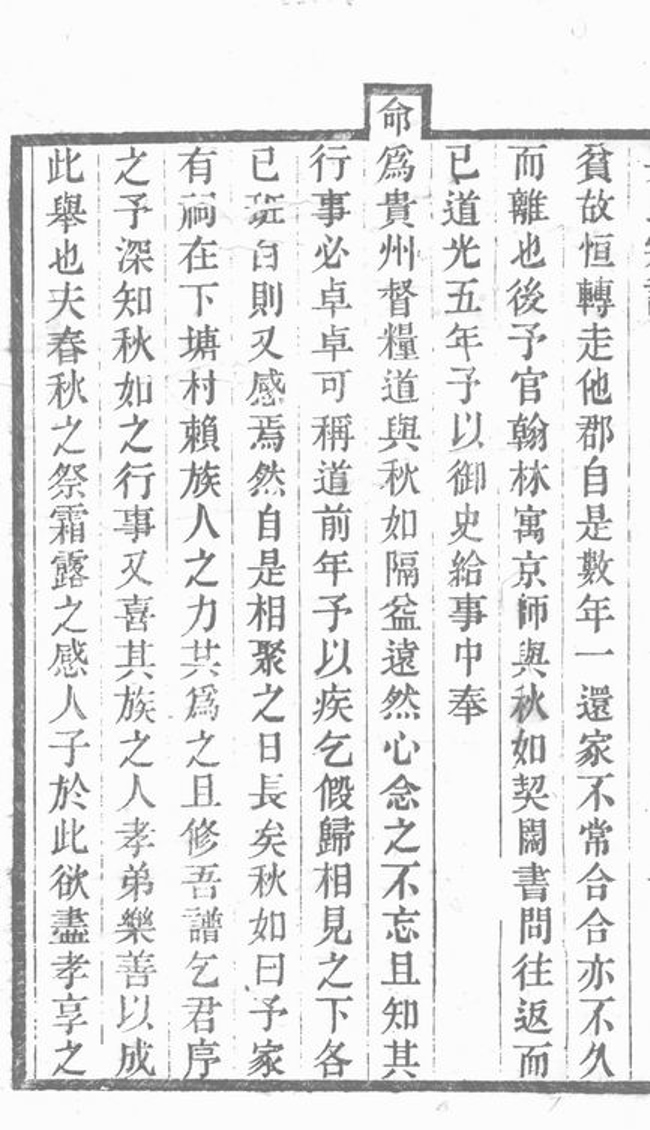 貧故恒轉走他郡自是數年一還家不常合合亦不久
而離也後予官翰林寓京師與秋如契闊書問往返而
已道光五年予以御史給事中奉
命爲貴州督糧道與秋如隔益遠然心念之不忘且知其
行事必卓卓可稱道前年予以疾乞假歸相見之下各
已班白則又感焉然自是相聚之日長矣秋如曰予家
有祠在下塘村賴族人之力共爲之且修吾譜乞君序
之予深知秋如之行事又喜其族之人孝弟樂善以成
此舉也夫春秋之祭霜露之感人子於此欲盡孝享之